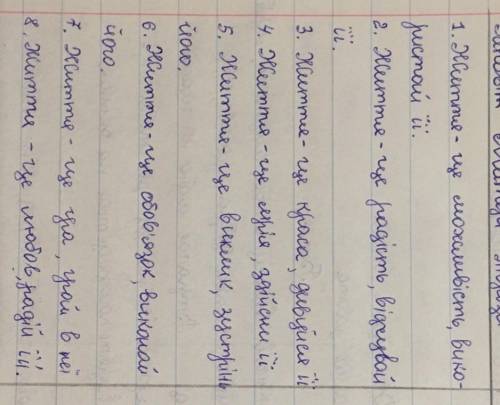 1. Життя - це можливість, вико-
ристай її.
2. Життя - це радість, відчувай
її.
3. Життя - це краса, дивуйся її
4. Життя - це мрія, здійсни її
5. Життя - це виклик, зустрінь
його.
6. Життя - це обов'язок, виконай
його.
7. Життя - це гра, грай в неї
8. Життя - це любов, радій їй.